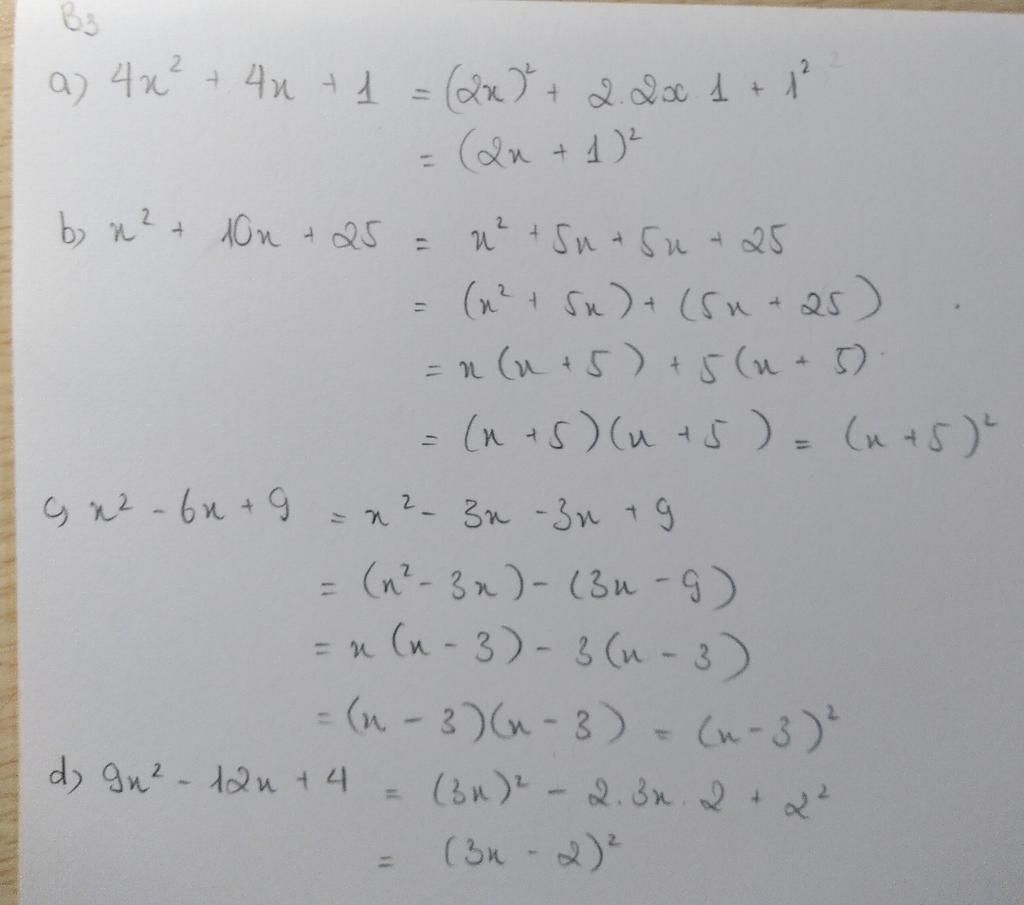 B3
a) 4x² + 4x + 1 = (2x)² + 2.2x.1 + 1²
= (2x + 1)²
b) x² + 10x + 25 = x² + 5x + 5x + 25
= (x² + 5x) + (5x + 25)
= x(x + 5) + 5(x + 5)
= (x + 5)(x + 5) = (x + 5)²
c) x² - 6x + 9 = x² - 3x - 3x + 9
= (x² - 3x) - (3x - 9)
= x(x - 3) - 3(x - 3)
= (x - 3)(x - 3) = (x - 3)²
d) 9x² - 12x + 4 = (3x)² - 2.3x.2 + 2²
= (3x - 2)²